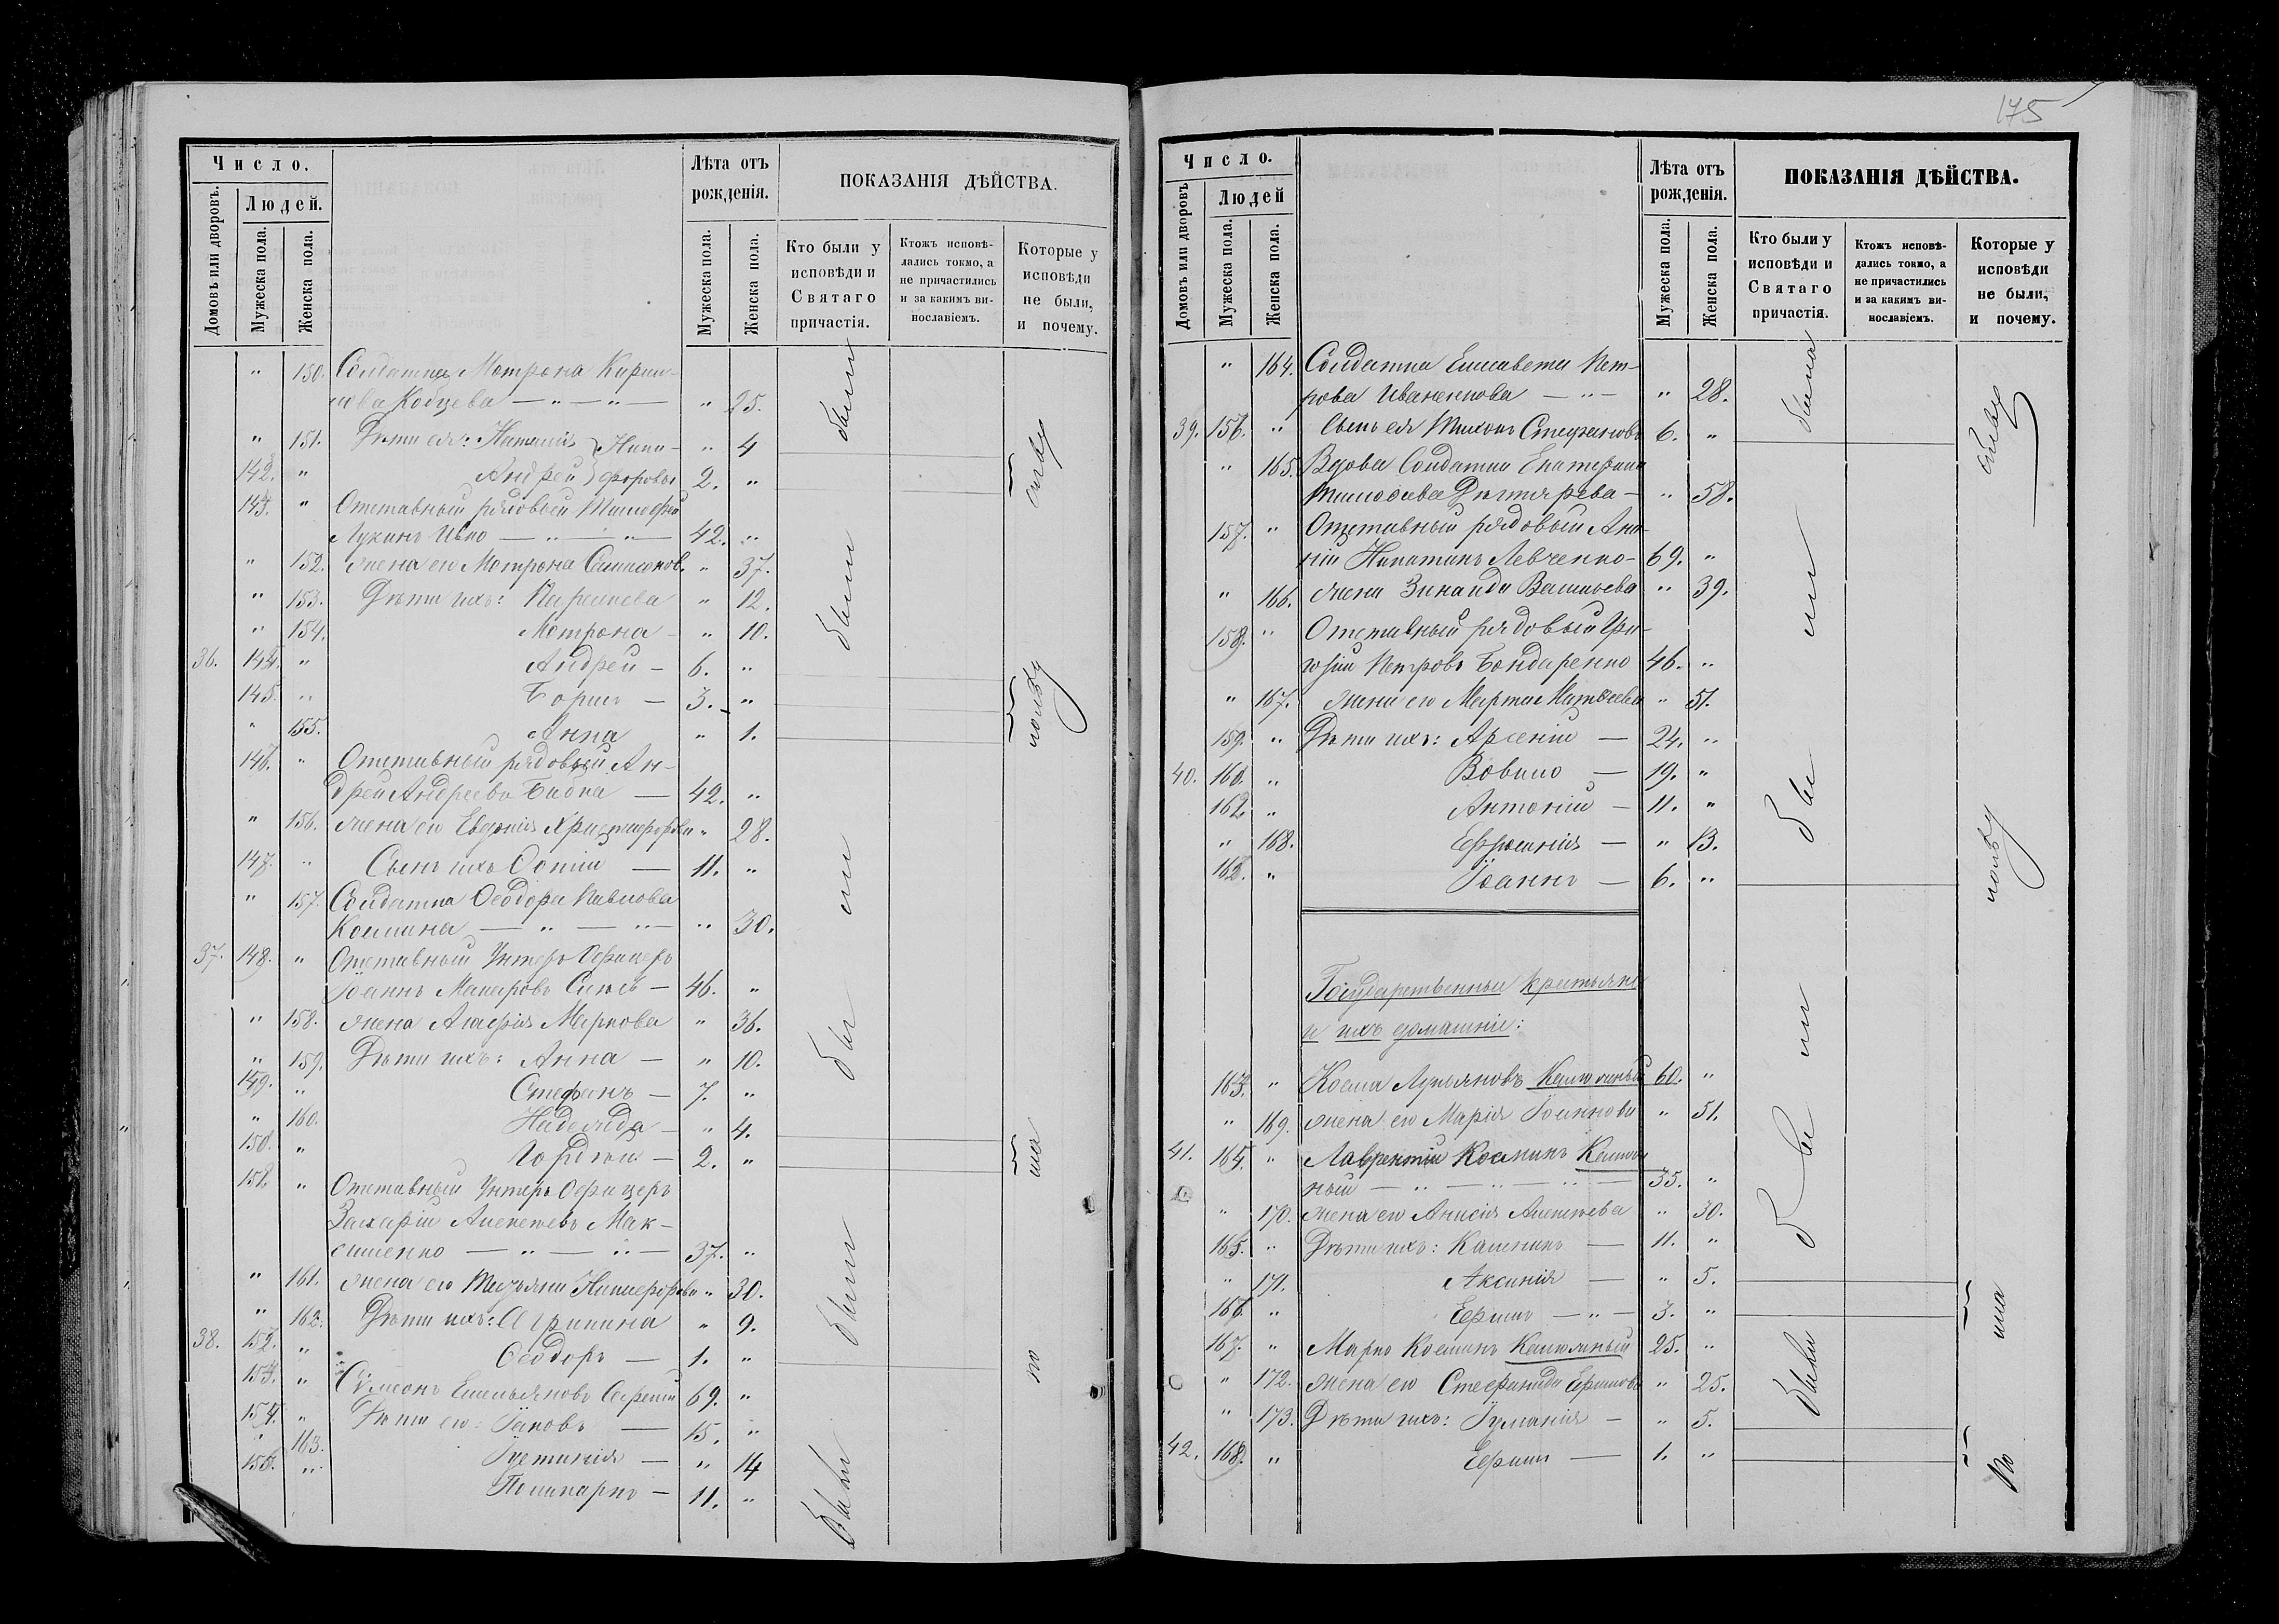 175
Число.
Людей.
Домовъ или дворовъ.
Мужеска пола.
Женска пола.
Лѣта отъ рожденія.
Мужеска пола.
Женска пола.
ПОКАЗАНІЯ ДѢЙСТВА.
Кто были у исповѣди и Святаго причастія.
Ктожъ исповѣ-
дались токмо, а
не причастились
и за какимъ ви-
нословіемъ.
Которые у
исповѣди
не были,
и почему.
" 150. Солдатка Мотрона Кирил-
лова Кобцева — " — " — " 25.
" 151. Дѣти ея: Наталія } Ники- " 4
142. " Андрей } форовы 2. "
143. " Отставный рядовый Тимофей
Лукинъ Ивко — " — " — 42. "
" 152. жена его Мотрона Симеонов. " 37.
" 153. Дѣти ихъ: Параскева " 12.
" 154. Мотрона — " 10.
36. 144. " Андрей — 6. "
145. " Борисъ — 3. "
" 155. Анна " 1.
146. " Отставный рядовый Ан-
дрей Андреевъ — 42. "
" 156. жена его Евдокія Христофорова " 28.
147. " Сынъ ихъ Фотій — 11. "
" 157. Солдатка Ѳеодора Павлова
— " — " — " 30.
37. 148. " Отставный Унтеръ Офицеръ
Іоаннъ Макаровъ — 46. "
" 158. жена Агафія Маркова " 36.
" 159. Дѣти ихъ: Анна — " 10.
149. " Стефанъ — 7. "
" 160. Надежда — " 4.
150. " Гордѣй — 2. "
151. " Отставный Унтеръ Офицеръ
Захарій Алексѣевъ Мак-
сименко — " — " — 37. "
" 161. жена его Татьяна Никифорова " 30.
" 162. Дѣти ихъ: Агрипина " 9.
38. 152. " Ѳеодоръ — 1. "
153. " Сѵмеонъ Емельяновъ 69. "
154. " Дѣти его: Іаковъ — 15. "
" 163. Іустинія — " 14
155. " Поликарпъ — 11. "
были
были
были
были
были
Число.
Людей
Домовъ или дворовъ
Мужеска пола.
Женска пола.
Лѣта отъ рожденія.
Мужеска пола
Женска пола.
ПОКАЗАНІЯ ДѢЙСТВА.
Кто были у
исповѣди и
Святаго
причастія.
Ктожъ исповѣ-
дались токмо, а
не причастились
и за какимъ ви-
нославіемъ.
Которые у
исповѣди
не были,
и почему.
" 164. Солдатка Елисавета Пет-
рова Иваненкова — " — " 28.
39. 156. " Сынъ ея Тихонъ Стефановъ 6. "
" 165. Вдова Солдатка Екатерина
Тимоѳеева Дегтярева — " 58.
157. " Отставный рядовый Ана-
ній Никитинъ Левченко — 69. "
" 166. жена Зинаида Васильева " 39.
158. " Отставный рядовый Гри-
горій Петровъ Бондаренко 46. "
" 167. жена его Марта Матвѣева " 51.
159. " Дѣти ихъ: Арсеній — 24. "
40. 160. " Вовило — 19. "
162. " Антоній — 11. "
" 168. Ефросинія — " 13.
162. " Іоаннъ — 6. "
Государственные крестьяне
и ихъ домашніе:
163. " Косма Лукьяновъ 60. "
" 169. жена его Марія Іоаннова " 51.
41. 164. " Лаврентій Косминъ
ный — " — " — " — 35. "
" 170. жена его Анисія Алексѣева " 30.
165. " Дѣти ихъ: Калиникъ — 11. "
" 171. Аксинія — " 5.
166. " Ефимъ — " — 3. "
167. " Марко Косминъ 25. "
" 172. жена его Стефанида Ефимова " 25.
" 173. Дѣти ихъ: Іуліанія — " 5.
42. 168. " Ефимъ — 1. "
была
были
были
были